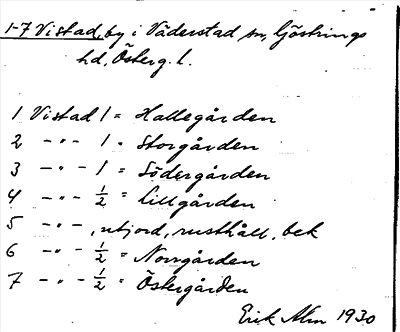 1-7 Vistad, by i Väderstad sn, Göstrings
hd, Österg. l.
1 Vistad 1 = Hallegården
2 -"- 1 = Storgården
3 -"- 1 = Södergården
4 -"- ½ = Lillgården
5 -"-, utjord, rusthåll, bek
6 -"- ½ = Norrgården
7 -"- ½ = Östergården
Erik Alm 1930